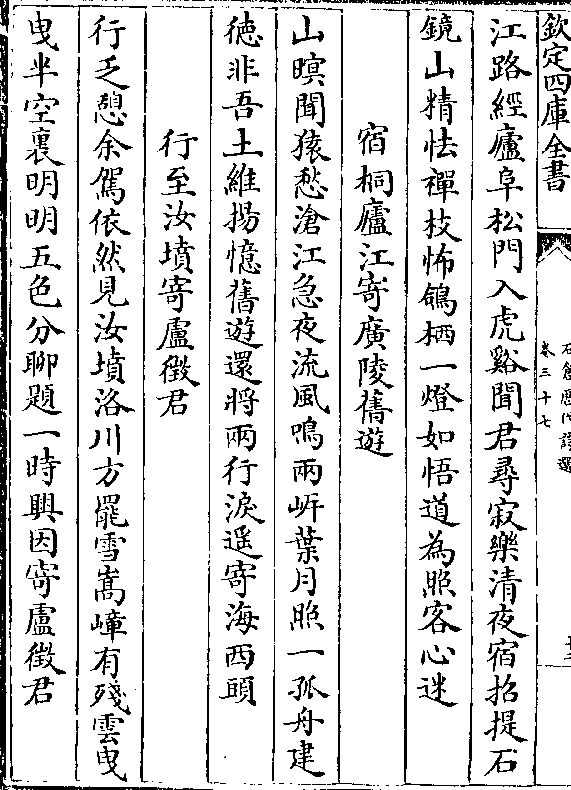 欽定四庫全書
石倉歴代詩選
卷三十七
江路經廬阜松門入虎谿聞君尋寂樂清夜宿招提石
鏡山精怯禪枝怖鴿栖一燈如悟道為照客心迷
宿桐廬江寄廣陵舊遊
山暝聞猿愁滄江急夜流風鳴兩岍葉月照一孤舟建
徳非吾土維揚憶舊遊還將兩行淚遥寄海西頭
行至汝墳寄盧徴君
行乏憩余駕依然見汝墳洛川方罷雪嵩嶂有殘雲曳
曳半空裏明明五色分聊題一時興因寄盧徴君